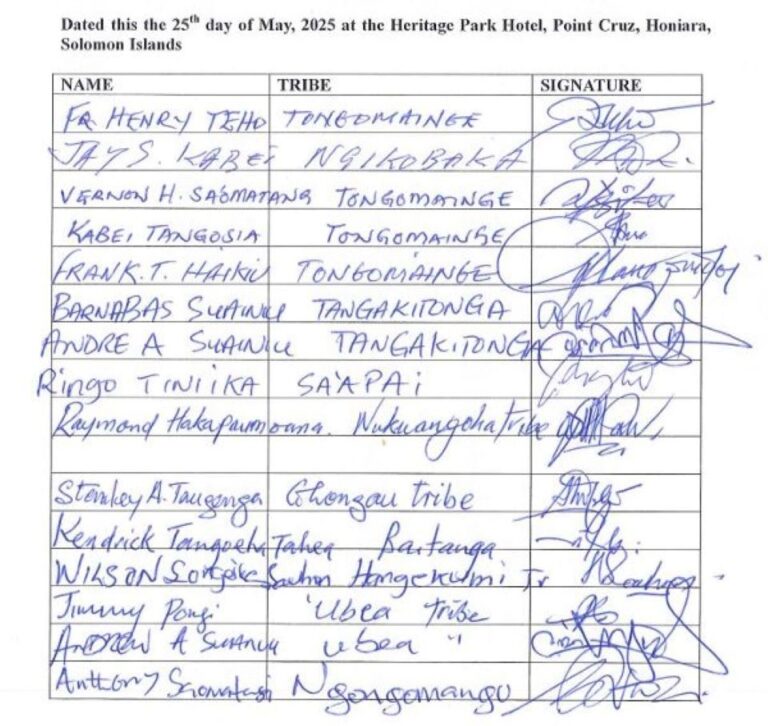 Dated this the 25th day of May, 2025 at the Heritage Park Hotel, Point Cruz, Honiara,
Solomon Islands
NAME TRIBE SIGNATURE
FR HENRY TEHO TONGOMAINGE
JAY S. KABEI NGIKOBAKA
VERNON H. SAOMATANG TONGOMAINGE
KABEI TANGOSIA TONGOMAINGE
FRANK.T. HAIKIU TONGOMAINGE
BARNABAS SUAINIU TANGAKITONGA
ANDRE A SUAINIU TANGAKITONGA
Ringo TINIIKA SA'APAi
Raymond Nukuangoha tribe
A. Taugenga Ghongau tribe
Kendrick Tahea Baitanga
WILSON
Jimmy Pongi 'Ubea tribe
ANDREW A ubea "
Anthony Ngongomangu